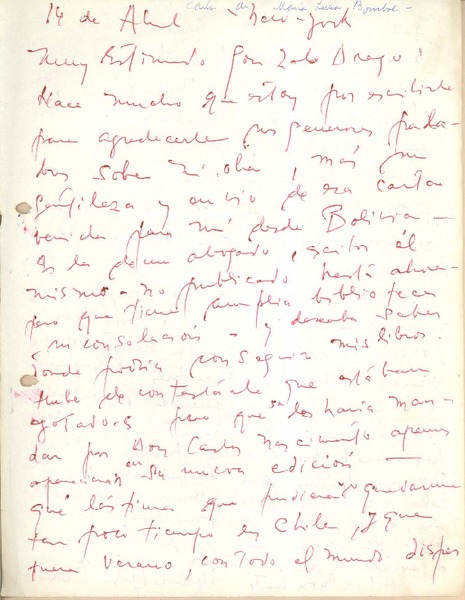 Carta de María Luisa Bombal -
14 de Abril - New-York
Muy Estimado Gonzalo Drago:
Hace mucho que estoy por escribirle
para agradecerle sus generosas palabras
sobre mi obra, más su
gentileza y envío de esa carta
venida para mí desde Bolivia -
Es la de un abogado, escritor él
mismo - no publicado hasta ahora -
pero que tiene amplia biblioteca
y deseaba saber
donde podría conseguir mis libros.
Hube de contestarle que estaban
agotados pero que se los haría man-
dar por Don Carlos Nascimento apenas
en su nueva edición —
qué lástima que
tan poco tiempo en Chile, y que
fuera verano, con todo el mundo disper